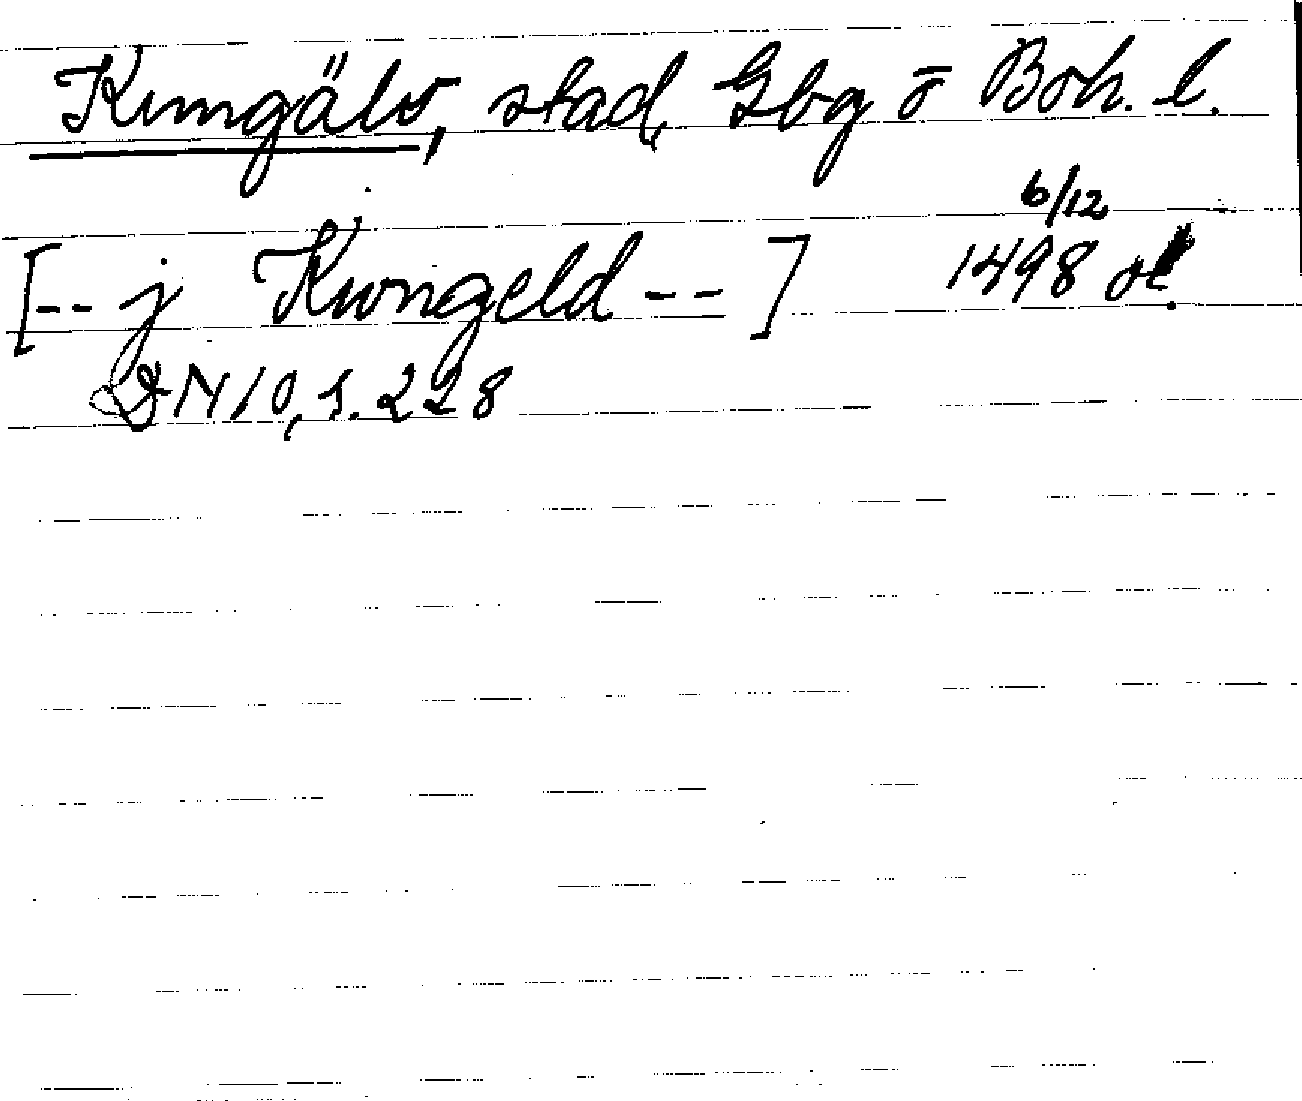 Kungälv, stad, Gbg o Boh. l.
6/12
[-- j Kwngeld --] 1498 or.
DN 10, s. 228